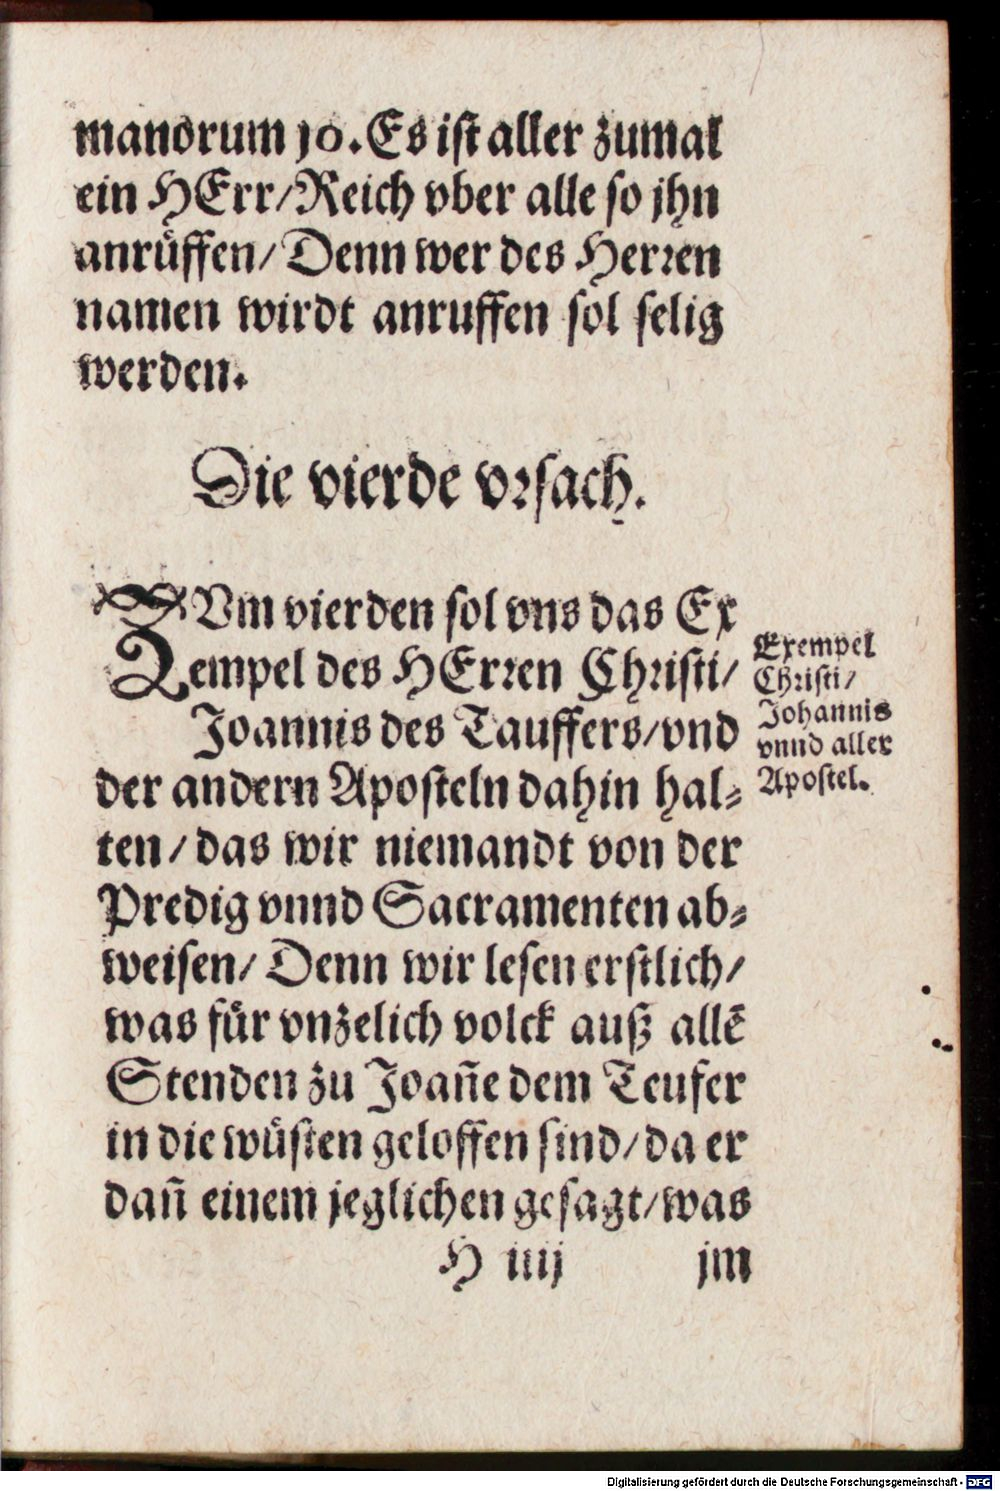 manorum 10. Es ist aller zumal
ein HErr/Reich vber alle so jhn
anrůffen/ Denn wer des Herren
namen wirdt anruffen sol selig
werden.
Die vierde vrsach.
ZVm vierden sol vns das Ex
empel des HErren Christi/
Joannis des Tauffers/vnd
der andern Aposteln dahin hal-
ten/das wir niemandt von der
Predig vnnd Sacramenten ab-
weisen/ Denn wir lesen erstlich/
was für vnzelich volck auß allē
Stenden zu Joañe dem Teufer
in die wůsten geloffen sind/da er
dañ einem jeglichen gesagt/was
H iiij jm
Exempel
Christi/
Johannis
vnnd aller
Apostel.
Digitalisierung gefördert durch die Deutsche Forschungsgemeinschaft - DFG